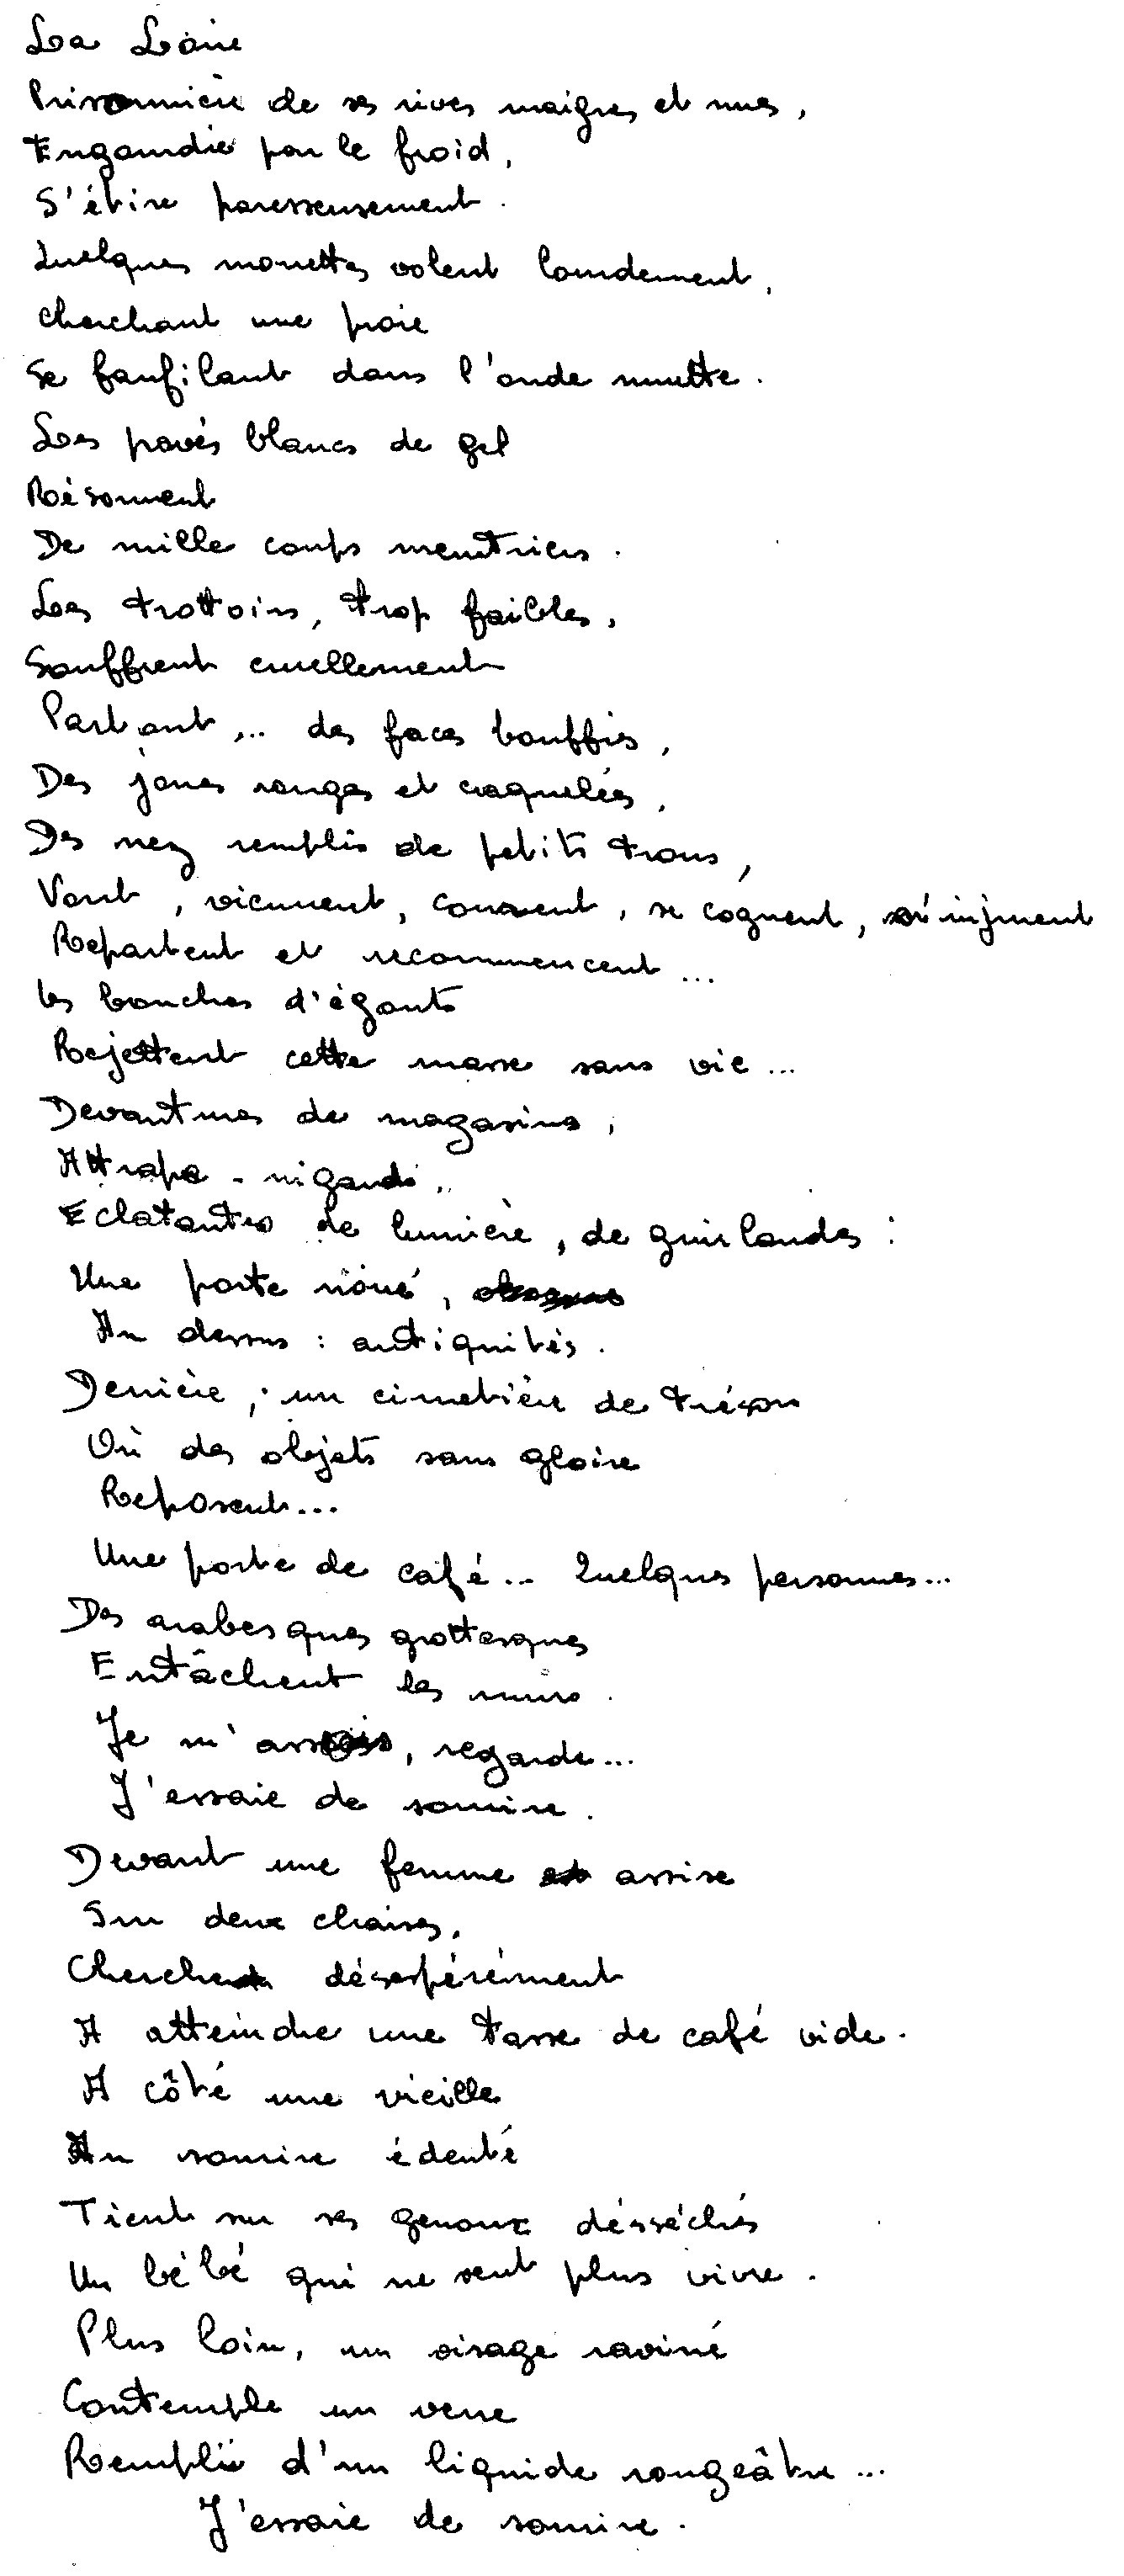 La Loire
Prisonnière de ses rives maigres et nues,
Engourdie par le froid,
S'étire paresseusement.
Quelques mouettes volent lourdement,
Cherchant une proie
Se faufilant dans l'onde muette.
Les pavés blancs de gel
Résonnent
De mille coups meurtriers.
Les trottoirs, trop faibles,
Souffrent cruellement
Partout,... des faces bouffies,
Des joues rouges et craquelées,
Des nez remplis de petits trous,
Vont, viennent, courent, se cognent, s'injurient
Repartent et recommencent...
Les bouches d'égouts
Rejettent cette masse sans vie...
Devantures de magasins,
Attrape-nigauds,
Eclatantes de lumière, de guirlandes :
Une porte
Au dessus : antiquités.
Derrière, un cimetière de trésors
Où des objets sans gloire
Reposent...
Une porte de café... Quelques personnes...
Des arabesques grottesques
Entâchent les murs.
Je m'assois, regarde...
J'essaie de sourire.
Devant une femme assise
Sur deux chaises,
Cherche désespérément
A atteindre une tasse de café vide.
A côté une vieille
Au sourire édenté
Tient sur ses genoux désséchés
Un bébé qui ne veut plus vivre.
Plus loin, un visage raviné
Contemple un verre
Rempli d'un liquide rougeâtre...
J'essaie de sourire.